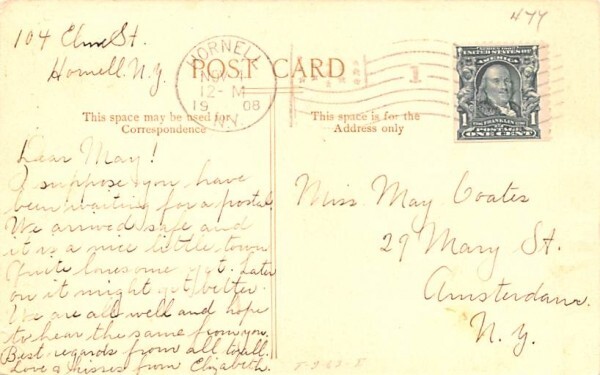 477
104 Elm St.
Hornell. N.y.
HORNELL
12-M
1908
N.Y.
1
POST CARD
SERIES 1902
UNITED STATES OF AMERICA
1 FRANKLIN 1
POSTAGE
ONE CENT
This space may be used for
Correspondence
This space is for the
Address only
Dear May!
I suppose you have
been waiting for a postal.
We arrived safe and
it is a nice little town
Quite lonesome yet. Later
on it might get better.
We are all well and hope
to hear the same from you.
Best regards from all to all.
Love & kisses from Elizabeth.
Miss May Coates
29 Mary St.
Amsterdam.
N. Y.